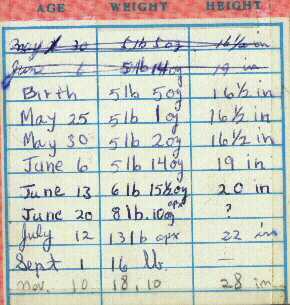 AGE WEIGHT HEIGHT
May 30 5 lb 5 oz 16 1/2 in
June 6 5 lb 14 oz 19 in
Birth 5 lb 5 oz 16 1/2 in
May 25 5 lb 1 oz 16 1/2 in
May 30 5 lb 2 oz 16 1/2 in
June 6 5 lb 14 oz 19 in
June 13 6 lb 15 1/2 oz 20 in
June 20 8 lb. 10 oz apx ?
July 12 13 lb apx 22 ins
Sept 1 16 lb. —
Nov. 10 18,10 28 in